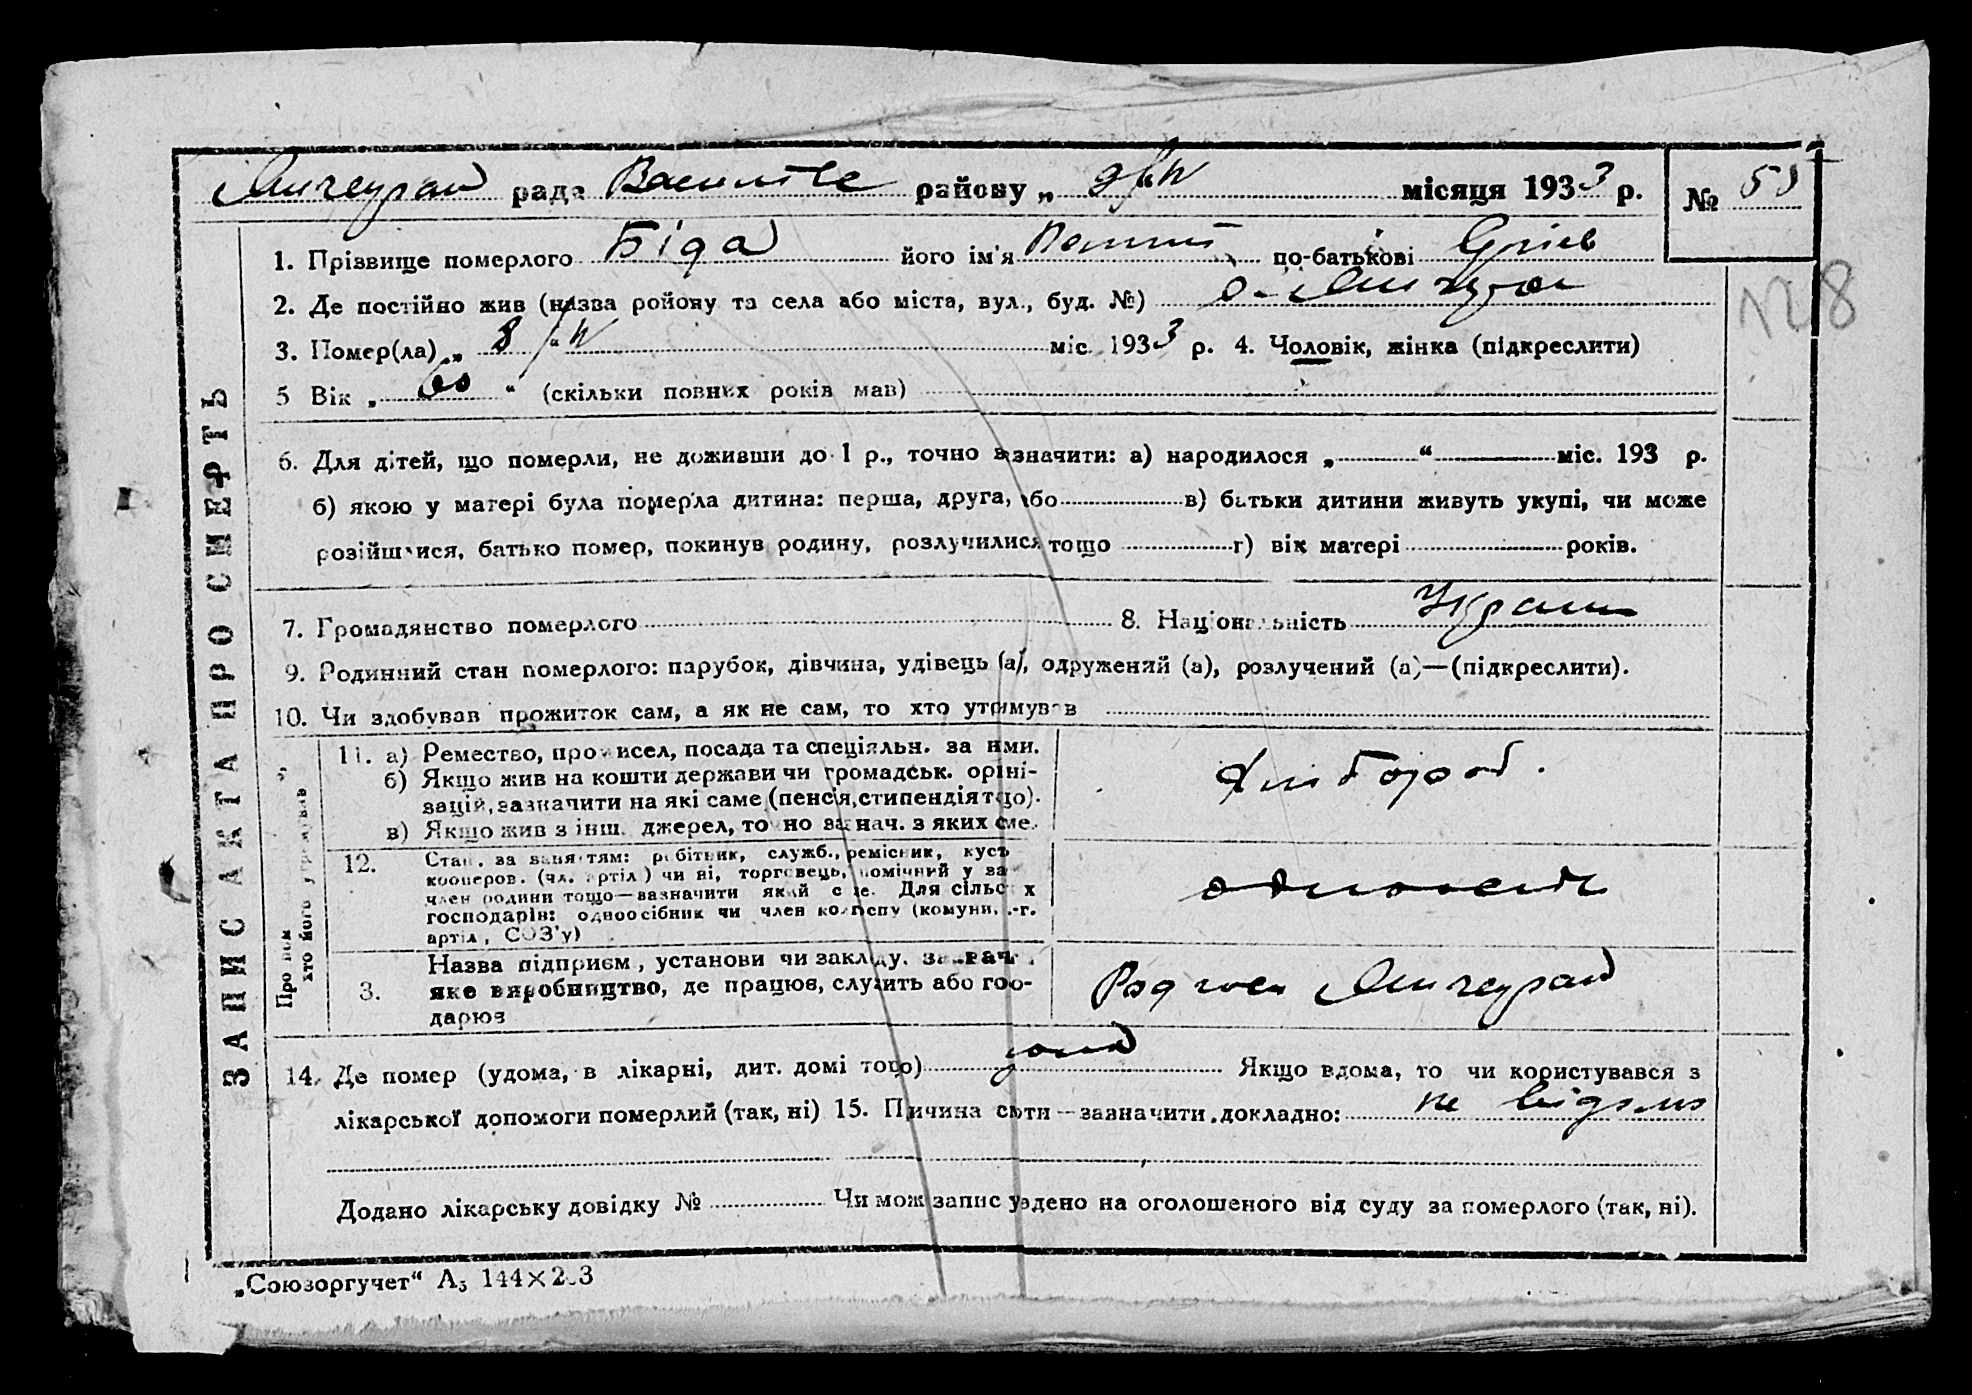 рада районy „ 9/IV місяця 1933 р. №
1. Прізвище померлого Біда його ім'я по-батькові
2. Де постійно жив (назва ройону та села або міста, вул., буд. №)
3. Помер(ла) „ 8/IV “ міс. 1933 р. 4. Чоловік, жінка (підкреслити)
5 Вік „ 60 “ (скільки повних років мав)
6. Для дітей, що померли, не доживши до 1 р., точно зазначити: а) народилося „ “ міс. 193 р.
б) якою у матері була померла дитина: перша, друга, або в) батьки дитини живуть укупі, чи може
розійшлися, батько помер, покинув родину, розлучилися тощо г) вік матері років.
7. Громадянство померлого 8. Національність Украин
9. Родинний стан померлого: парубок, дівчина, удівець (а), одружений (а), розлучений (а)—(підкреслити).
10. Чи здобував прожиток сам, а як не сам, то хто утримував
11. а) Ремество, промисел, посада та спеціяльн. за ними.
б) Якщо жив на кошти держави чи громадськ. оріні-
зацій, зазначити на які саме (пенсія, стипендія тощо).
в) Якщо жив з інш. джерел, точно зазнач. з яких саме.
Хлібороб.
12. Стан. за заняттям: робітник, служб., ремісник, кусть
кооперов. (чл. артіл) чи ні, торговець, помічний у за
член родини тощо—зазначити який саме. Для сільськ х
господарів: одноосібник чи член колгоспу (комуни, -г.
артіл, СОЗ'у)
3. Назва підприєм, установи чи закладу, зазнач
яке виробництво, де працює, служить або госпо-
дарює
14. Де помер (удома, в лікарні, дит. домі тощо) дома Якщо вдома, то чи користувався з
лікарської допомоги померлий (так, ні) 15. Причина смерти — зазначити докладно: не відомо
Додано лікарську довідку № Чи може запис укладено на оголошеного від суду за померлого (так, ні).
ЗАПИС АКТА ПРО СМЕРТЬ
„Союзоргучет“
№8